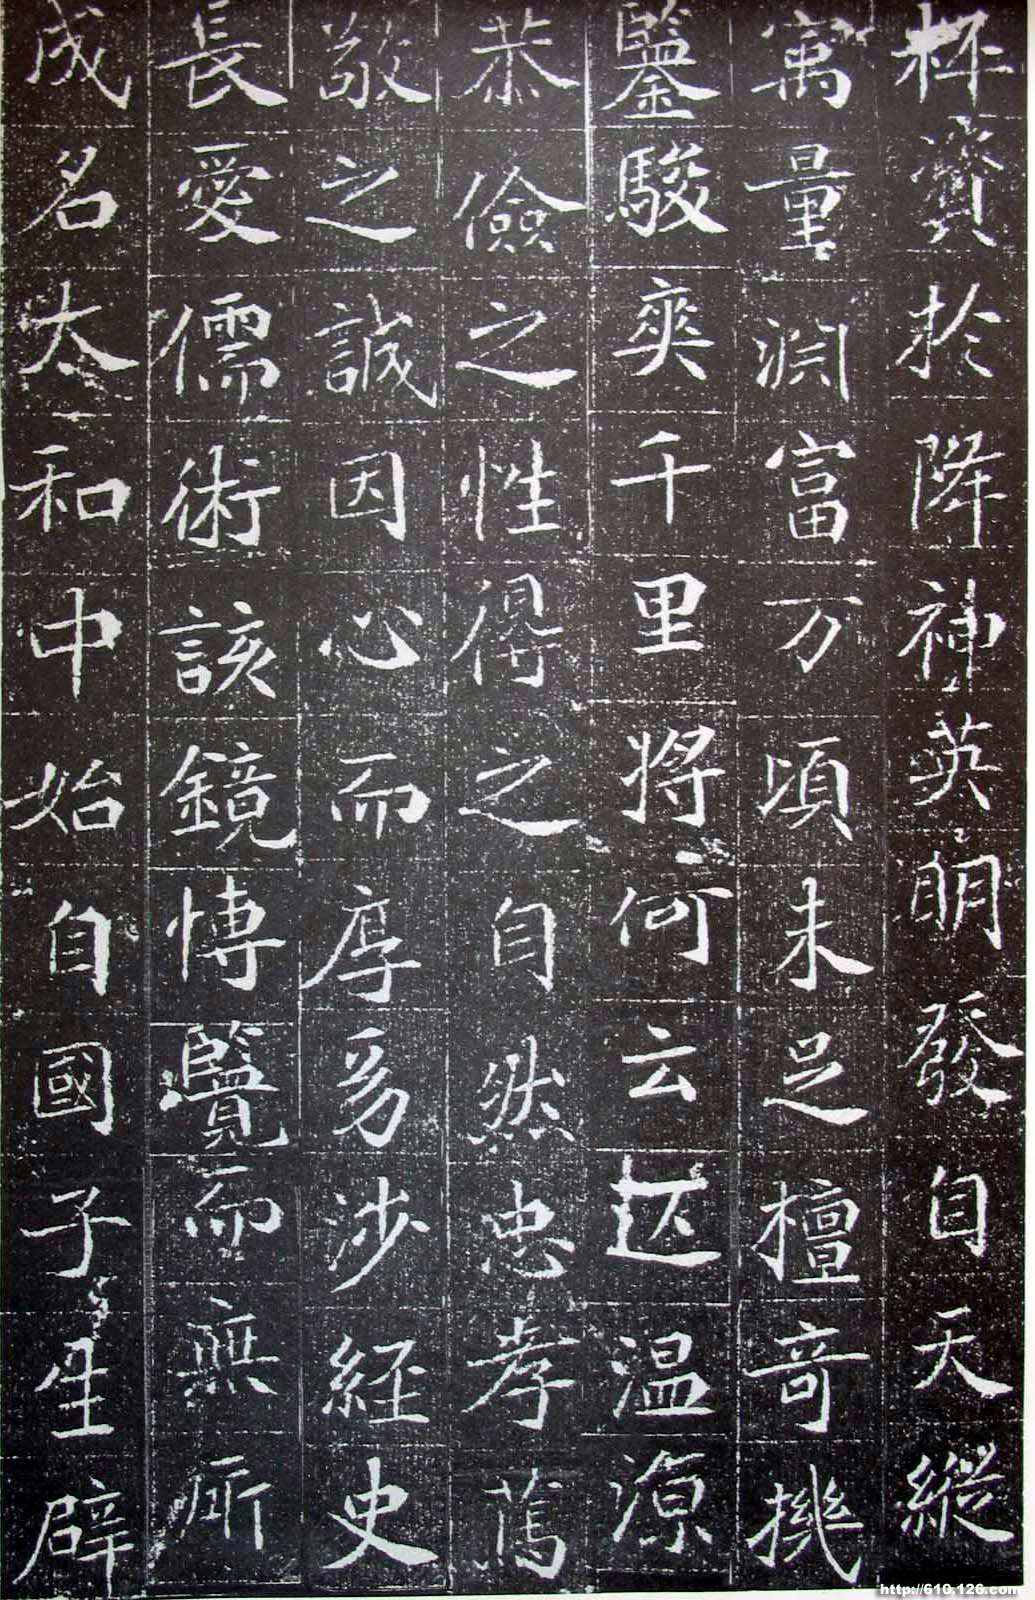 資於降神英明發自天縱
寓量淵富万頃未足檀奇機
鑒駿爽千里將何云迖温源
恭儉之性得之自然忠孝焉
敬之誠因心而厚涉經史
長愛儒術該鏡博覽而無所
成名太和中始自國子生辟
http://610.126.com